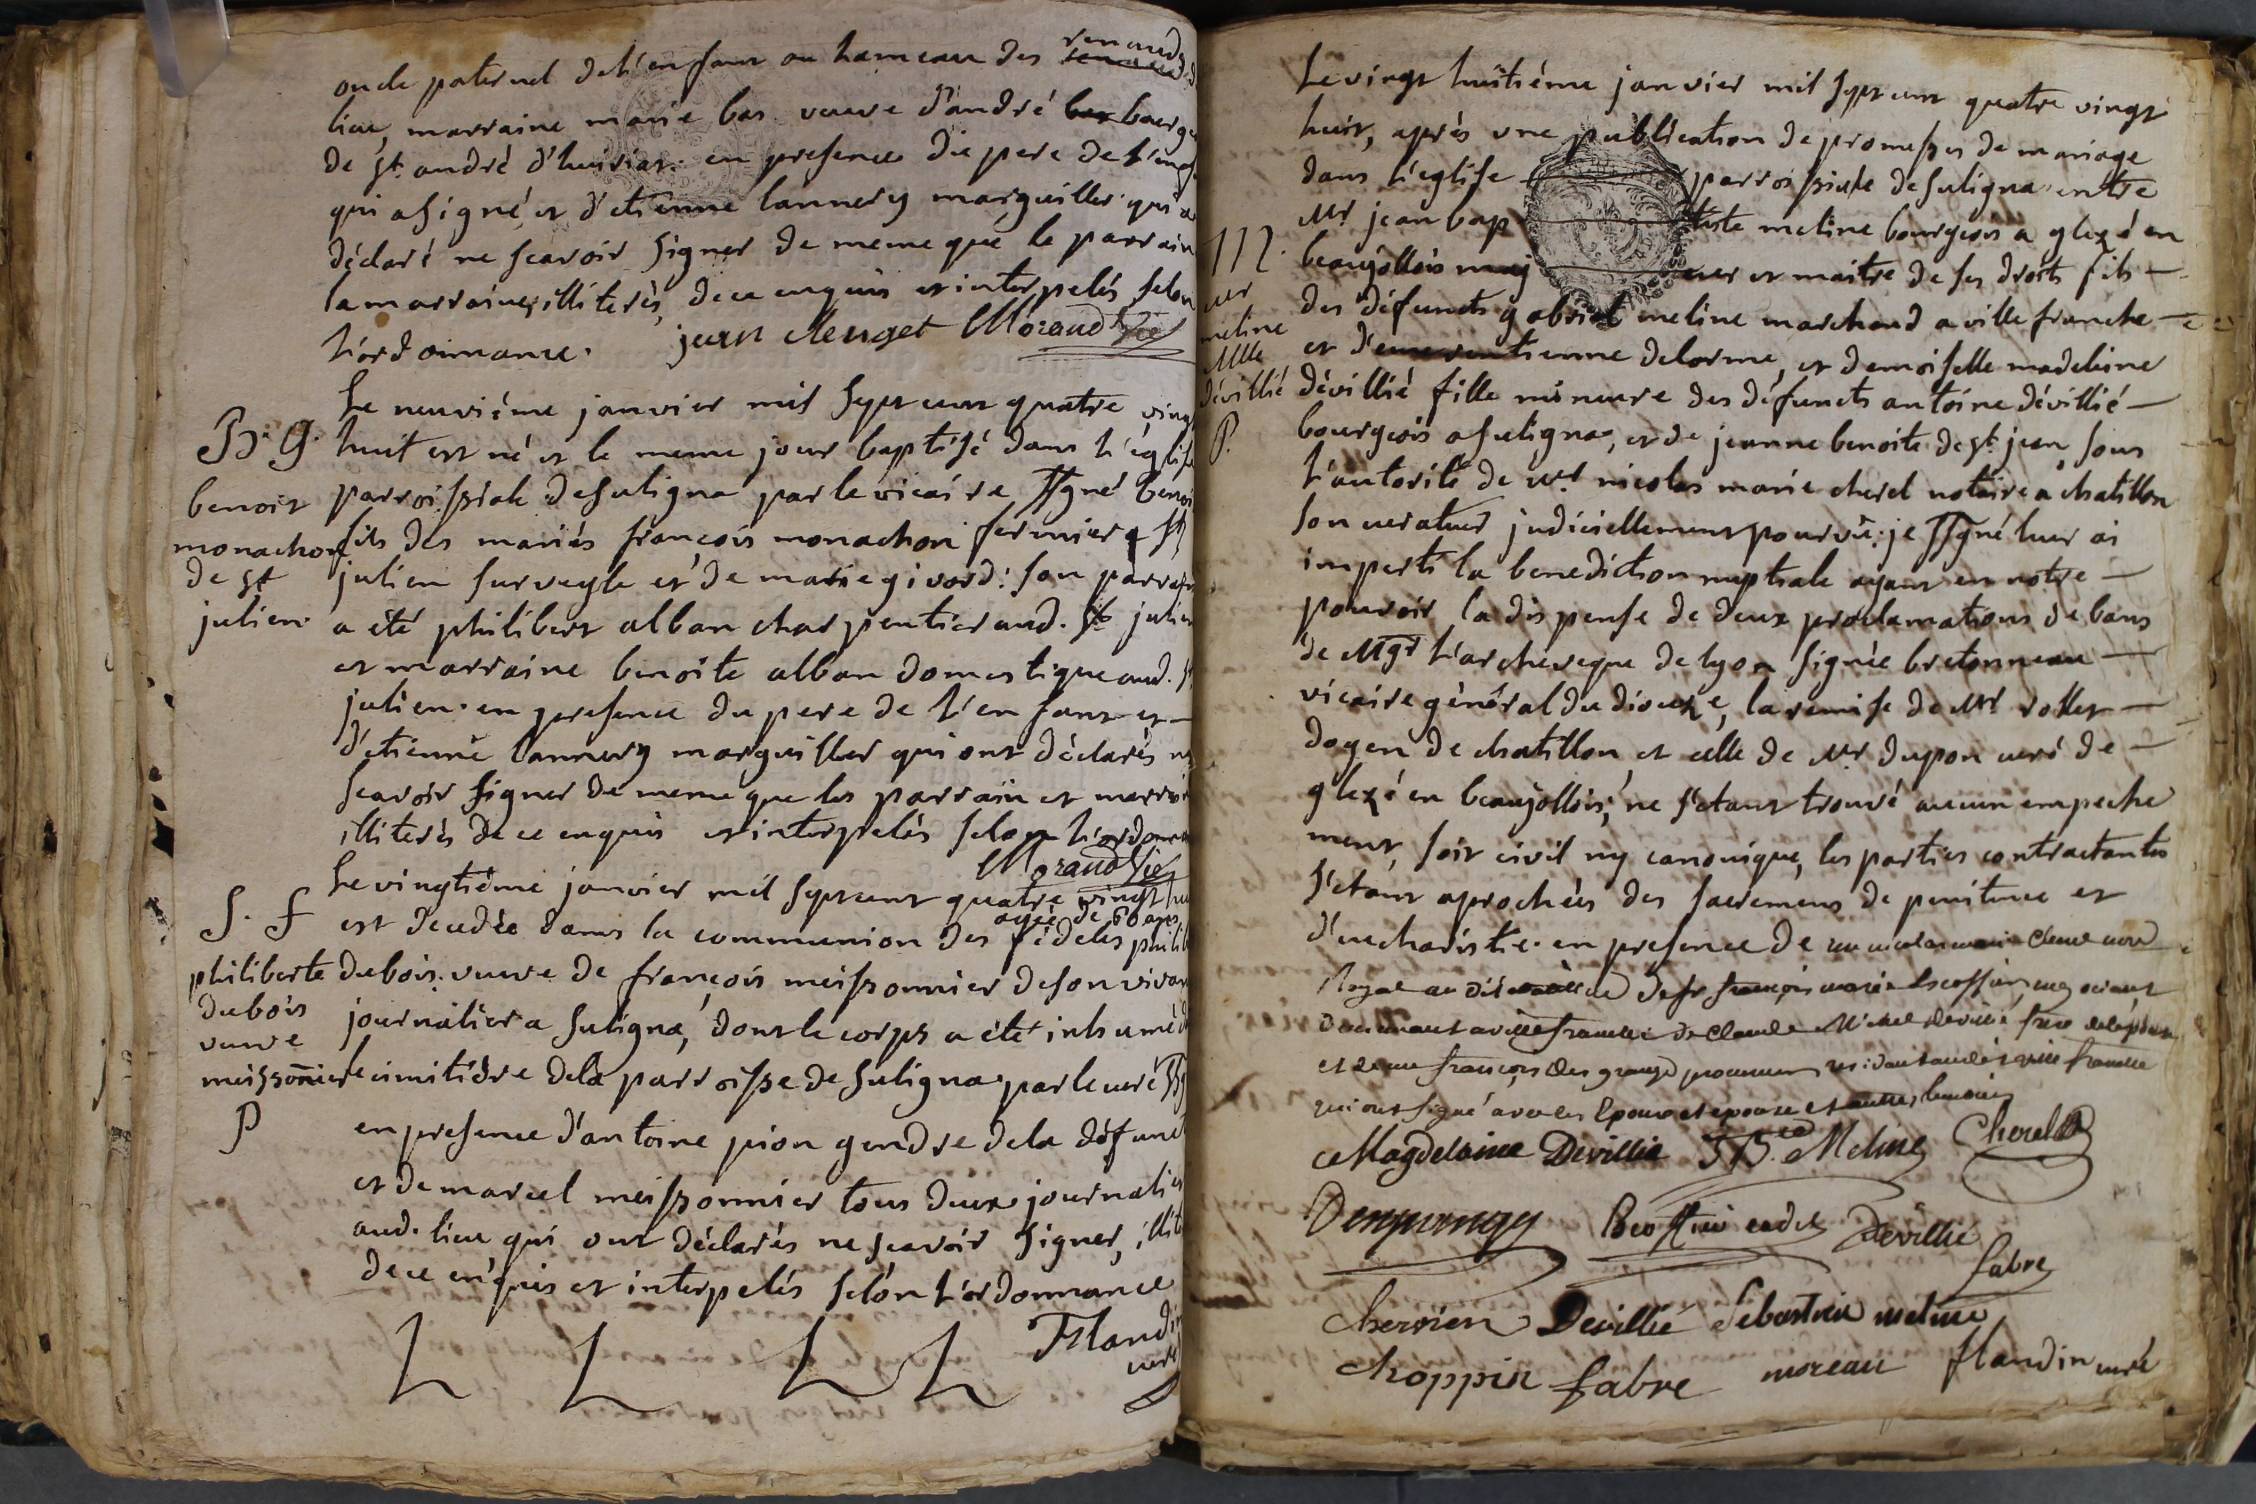 oncle paternel de l'enfant au hameau des renauds
lieu, marraine marie bas veuve d'andré bourg
de st andré d'huiriat. en presence du pere de l'enf
qui a signé, et d'etienne lannery marguiller qui a
déclaré ne scavoir signer de meme que le parrain
la marraine, illiterés, de ce enquis et interpelés selon
l'ordonnance. jean Clenget Morand Vic
Le neuvième janvier mil sept cent quatre vingt
B. G. huit est né et le meme jour baptisé dans l'eglise
benoit parroissiale de suligna par le vicaire ssgné benoi
monachon fils des mariés françois monachon fermier a st
de st julien sur veyle et de marie givord: son parrain
julien a été philibert alban charpentier aud. st julien
et marraine benoite alban domestique aud. st
julien. en presence du pere de l'enfant et
d'etienne lannery marguiller qui ont déclarés ne
scavoir signer de meme que les parrain et marrai
illiterés de ce enquis et interpelés selon l'ordonna
Morand Vic
Le vingtième janvier mil sept cent quatre vingt hu
agée de 60 ans
S. f est decedée dans la communion des fidèles philib
philiberte dubois. veuve de françois meissonnier de son vivan
dubois journalier a suligna, dont le corps a été inhumé d
veuve
meissonier le cimitière de la parroisse de suligna par le curé ssg
P en presence d'antoine pion gendre de la défunct
et de marcel meissonnier tous deux journalie
aud. lieu, qui ont déclarés ne scavoir signer, illité
de ce enquis et interpelés selon l'ordonnance
Flandin
curé
Le vingt huitième janvier mil sept cent quatre vingt
huit, après une publication de promesses de mariage
dans l'eglise parroissiale de suligna entre
Mr jean baptiste meline bourgeois a glezé en
M. beaujollois majeur et maitre de ses droits fils
mr des défuncts gabriel meline marchand a ville franche
meline et d'etienne delorme, et demoiselle madeleine
Mlle
dévillié dévillié fille mineure des défuncts antoine dévillié
P. bourgeois a suligna, et de jeanne benoite de st jean sous
l'autorité de Mr nicolas marie cherel notaire a chatillon
son curateur judiciellement pourvu; je ssgné leur ai
imparti la benediction nuptiale ayant en notre
pouvoir la dispense de deux proclamations de bans
de Mgr l'archeveque de lyon signée bretonneau
vicaire général du diocèze, la remise de Mr rollet
doyen de chatillon et celle de Mr dupon curé de
glezé en beaujollois; ne s'etant trouvé aucun empeche
ment, soit civil ny canonique, les parties contractantes
s'etant aprochées des sacremens de penitence et
d'eucharistie. en presence de
Royal au dit de sr françois marie negociant
demeurant a ville franche de Claude Michel devillié frere de l'epouse
et de françois des granges procureur residant audit ville franche
qui ont signé avec les Epoux et epouse et autres temoins
Magdelaine Devillié J B. Meline Cherel
cadet Devillié
fabre
Devillié Sebastien meline
Choppin fabre moreau flandin curé